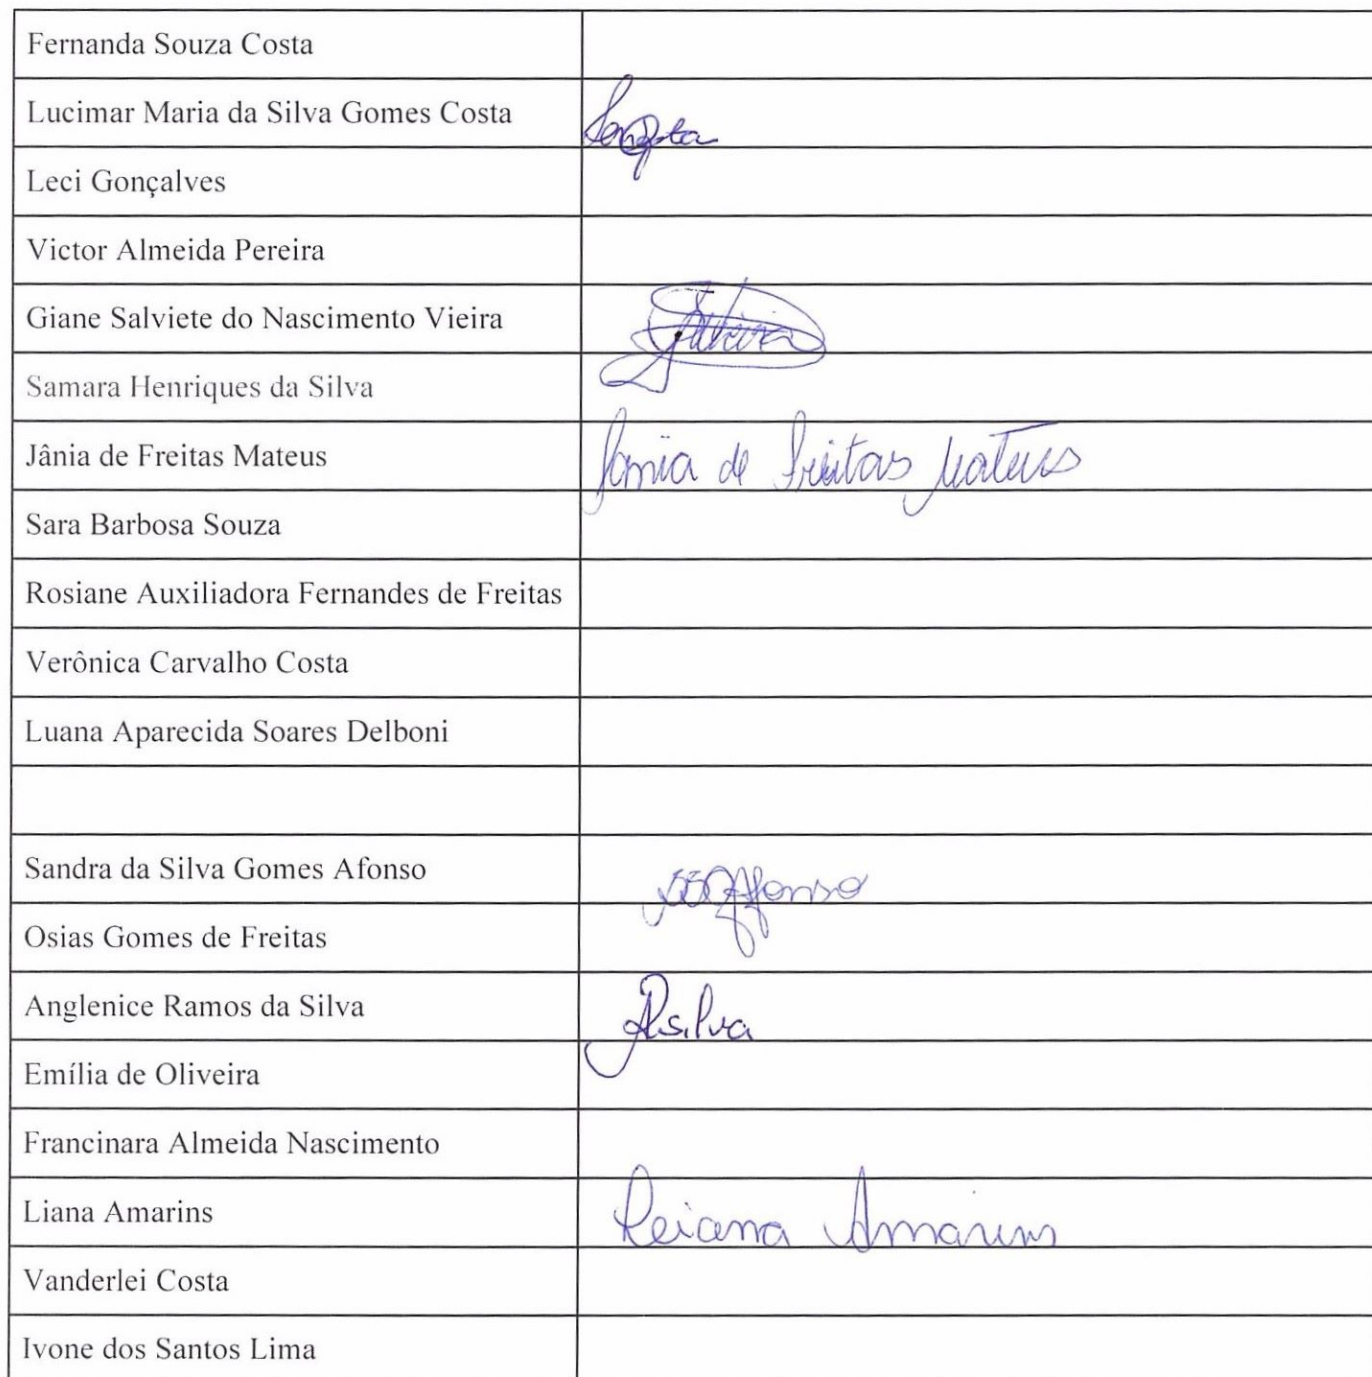 Fernanda Souza Costa
Lucimar Maria da Silva Gomes Costa
Leci Gonçalves
Victor Almeida Pereira
Giane Salviete do Nascimento Vieira
Samara Henriques da Silva
Jânia de Freitas Mateus Jania de Freitas Mateus
Sara Barbosa Souza
Rosiane Auxiliadora Fernandes de Freitas
Verônica Carvalho Costa
Luana Aparecida Soares Delboni
Sandra da Silva Gomes Afonso SSGAfonso
Osias Gomes de Freitas
Anglenice Ramos da Silva ARsilva
Emília de Oliveira
Francinara Almeida Nascimento
Liana Amarins Leiana Amarins
Vanderlei Costa
Ivone dos Santos Lima